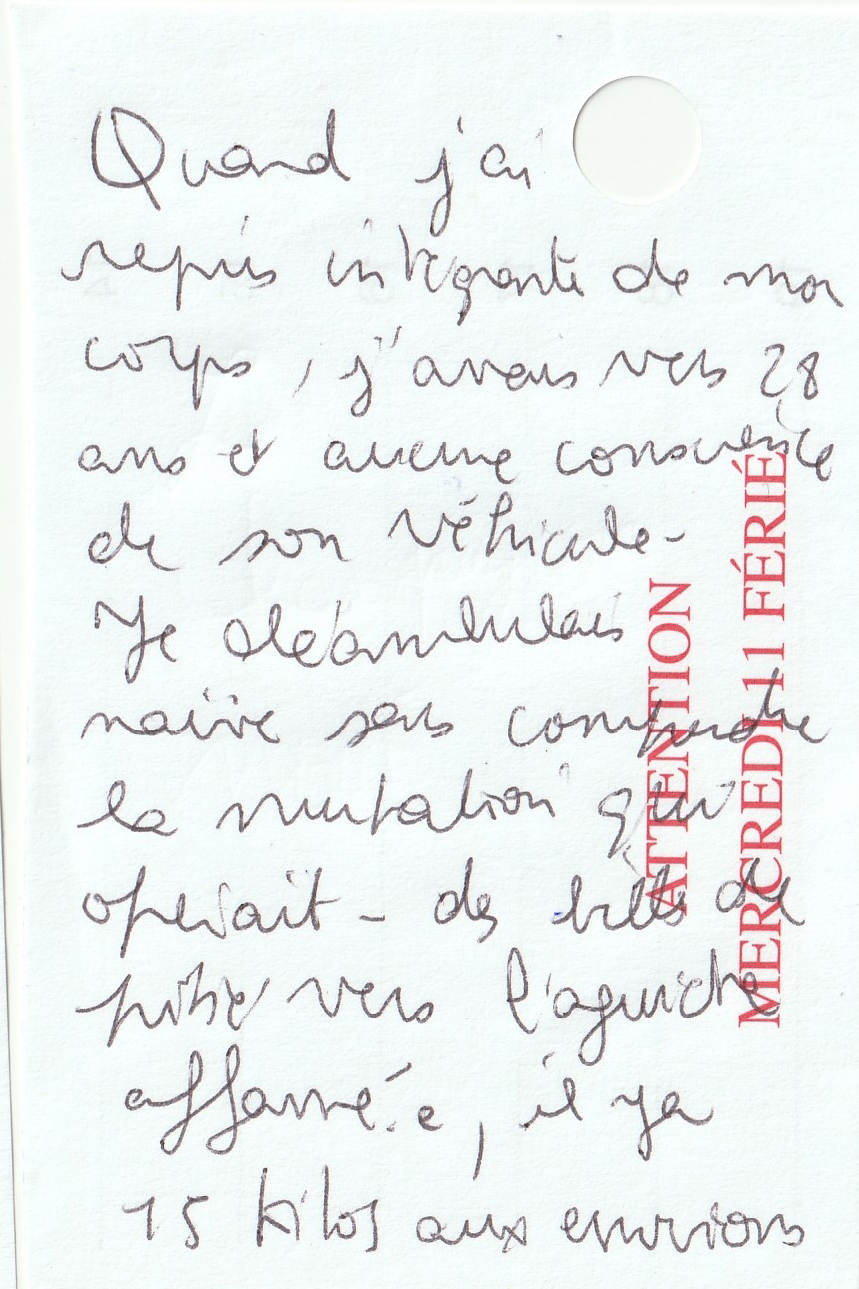 Quand j'ai
repris intégrante de mon
corps, j'avais vers 28
ans et aucune conscience
de son véhicule-
Je déambulais
naïve sans comprendre
la mutation qui
operait - des de
pitié vers l'aguiche
affamée, il y a
15 kilos aux environs
ATTENTION
MERCREDI 11 FÉRIÉ